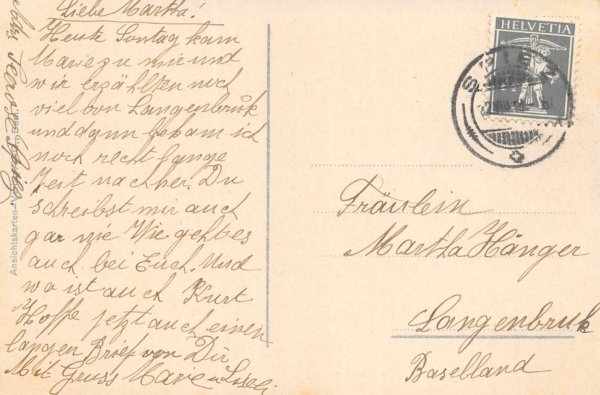 Liebe Martha!
Heute Sontag kam
Marie zu mir und
wir erzählten noch
viel von Langenbruk
und dann bekam ich
noch recht lange
Zeit nachher. Du
schreibst mir auch
gar nie Wie geht es
auch bei Euch. Und
wo ist auch Kurt
Hoffe jetzt auch einen
langen Brief von Dir
Mit Gruss Marie u. Liseli
Ansichtskarten
HELVETIA
SPIEZ
Fräulein
Martha Hänger
Langenbruk
Baselland